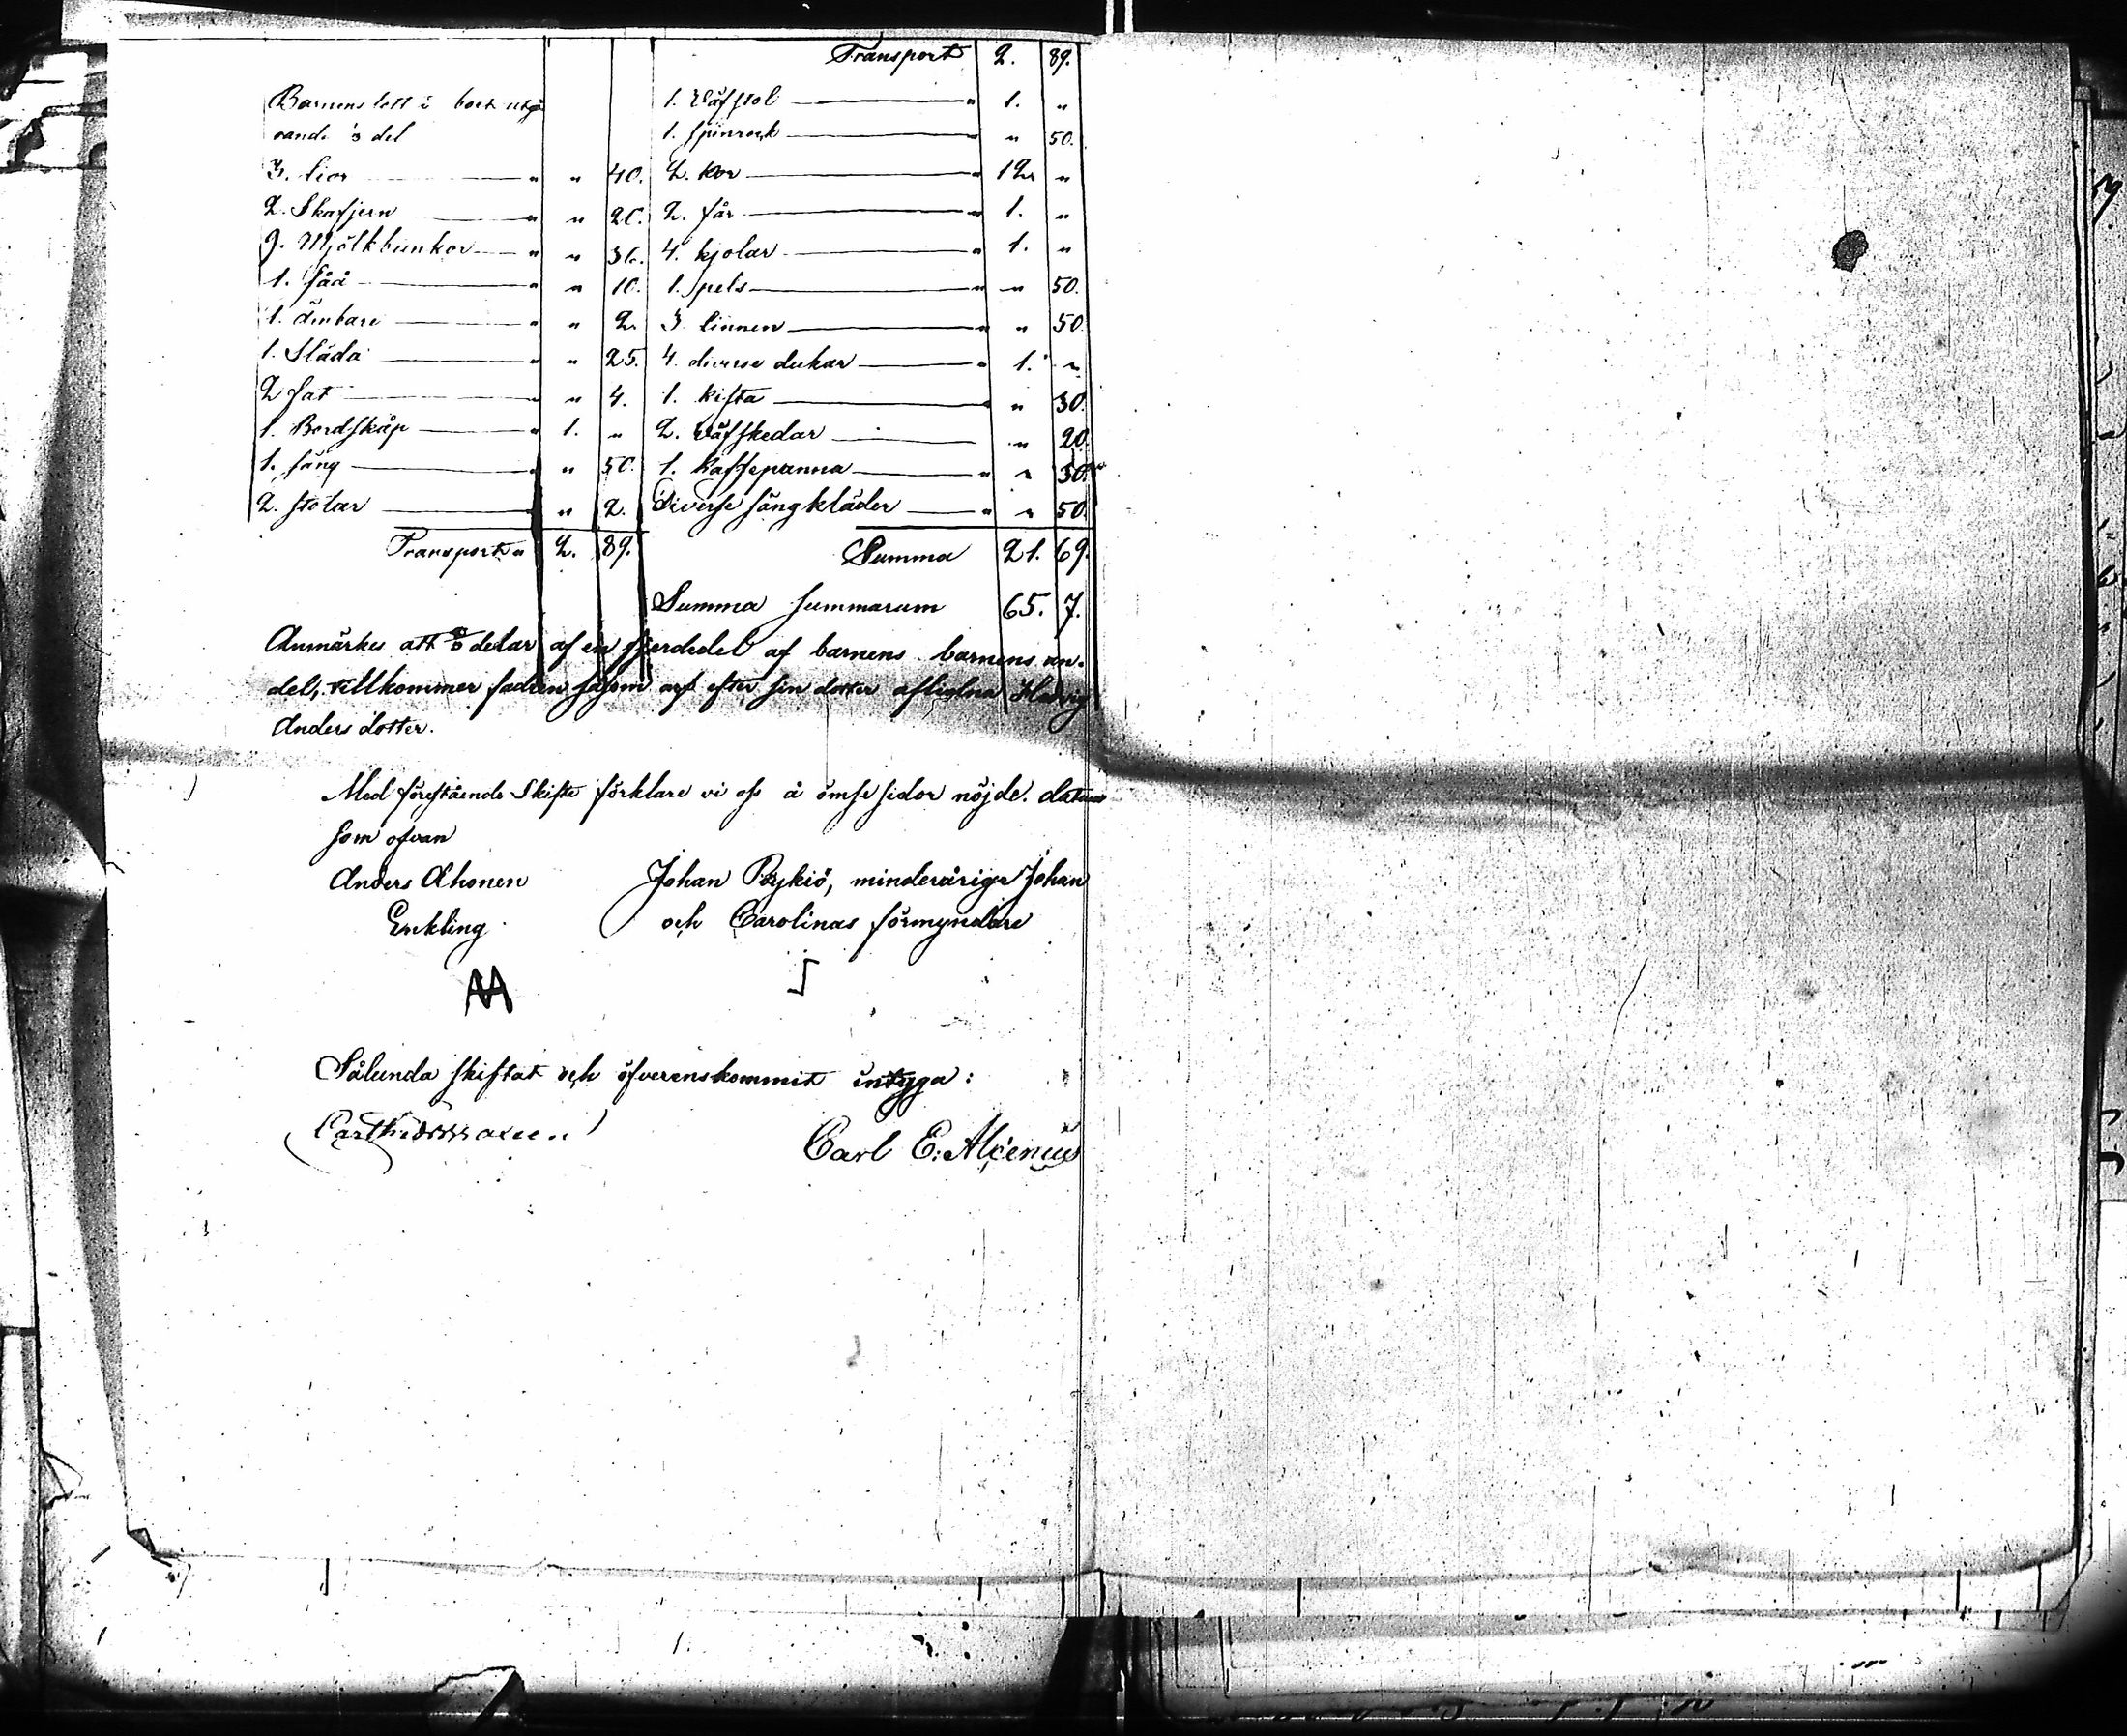 Barnens lott i boet utgö
rande ⅓ del
3. lior " " 40.
2. Skafjern " " 20.
9. Mjölkbunkor " " 36.
1. så " " 10.
1. ämbare " " 2.
1. Släda " " 25.
2 fat " " 4.
1. Bordskåp " 1. "
1. säng " " 50.
2. stolar " " 2.
Transport " 2. 89.
Transport 2. 89.
1. Väfstol " 1. "
1. spinrock " " 50.
2. kor " 12 "
2. får " 1. "
4. kjolar " 1. "
1. pels " " 50.
3 linnen " " 50.
4. diverse dukar " 1. "
1. kista " " 30.
2. väfskedar " 20.
1. Kaffepanna " " 30.
Diverse sängkläder " " 50.
Summa 21. 69.
Summa summarum 65. 7.
Anmärkes att delar af en fjerdedel af barnens barnens an-
del, tillkommer fadren såsom arf efter sin dotter aflidna Hedvig
Anders dotter.
Med förestående Skifte förklare vi oss å ömse sidor nöjde. datum
som ofvan
Anders Ahonen Johan Pykiö, minderårige Johan
Enkling och Carolinas förmyndare
Sålunda skiftat och öfverenskommit intyga:
Carl E. Alcenius